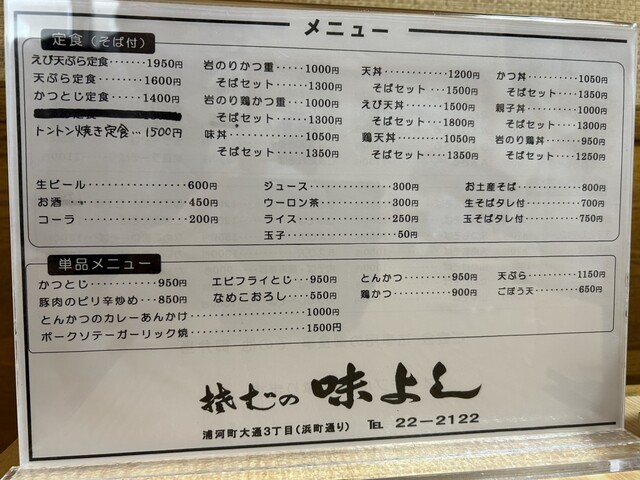 メニュー
定食(そば付)
えび天ぷら定食・・・・・・・1950円
天ぷら定食・・・・・・・・・1600円
かつとじ定食・・・・・・・・1400円
トントン焼き定食・・・1500円
岩のりかつ重・・・・・1000円
そばセット・・・・・1300円
岩のり鶏かつ重・・・1000円
そばセット・・・・・1300円
味丼・・・・・・・・・・・・・1050円
そばセット・・・・・1350円
天丼・・・・・・・・・・・1200円
そばセット・・・・・1500円
えび天丼・・・・・・・1500円
そばセット・・・・・1800円
鶏天丼・・・・・・・・・1050円
そばセット・・・・・1350円
かつ丼・・・・・・・・・1050円
そばセット・・・・・1350円
親子丼・・・・・・・・・1000円
そばセット・・・・・1300円
岩のり鶏丼・・・・・950円
そばセット・・・・・1250円
生ビール・・・・・・・・・・・・・600円
お酒・・・・・・・・・・・・・・・450円
コーラ・・・・・・・・・・・・・・200円
ジュース・・・・・・・・・・・300円
ウーロン茶・・・・・・・・・300円
ライス・・・・・・・・・・・・・250円
玉子・・・・・・・・・・・・・・・50円
お土産そば・・・・・・・・・800円
生そばタレ付・・・・・・・700円
玉そばタレ付・・・・・・・750円
単品メニュー
かつとじ・・・・・・・・・・・950円
豚肉のピリ辛炒め・・・850円
とんかつのカレーあんかけ・・・・・・・・・・・・1000円
ポークソテーガーリック焼・・・・・・・・・・・・1500円
エビフライとじ・・・950円
なめこおろし・・・・・550円
とんかつ・・・・・・・・・450円
鶏かつ・・・・・・・・・・・900円
天ぷら・・・・・・・・・1150円
ごぼう天・・・・・・・650円
味よし
浦河町大通3丁目(浜町通り) TEL 22-2122